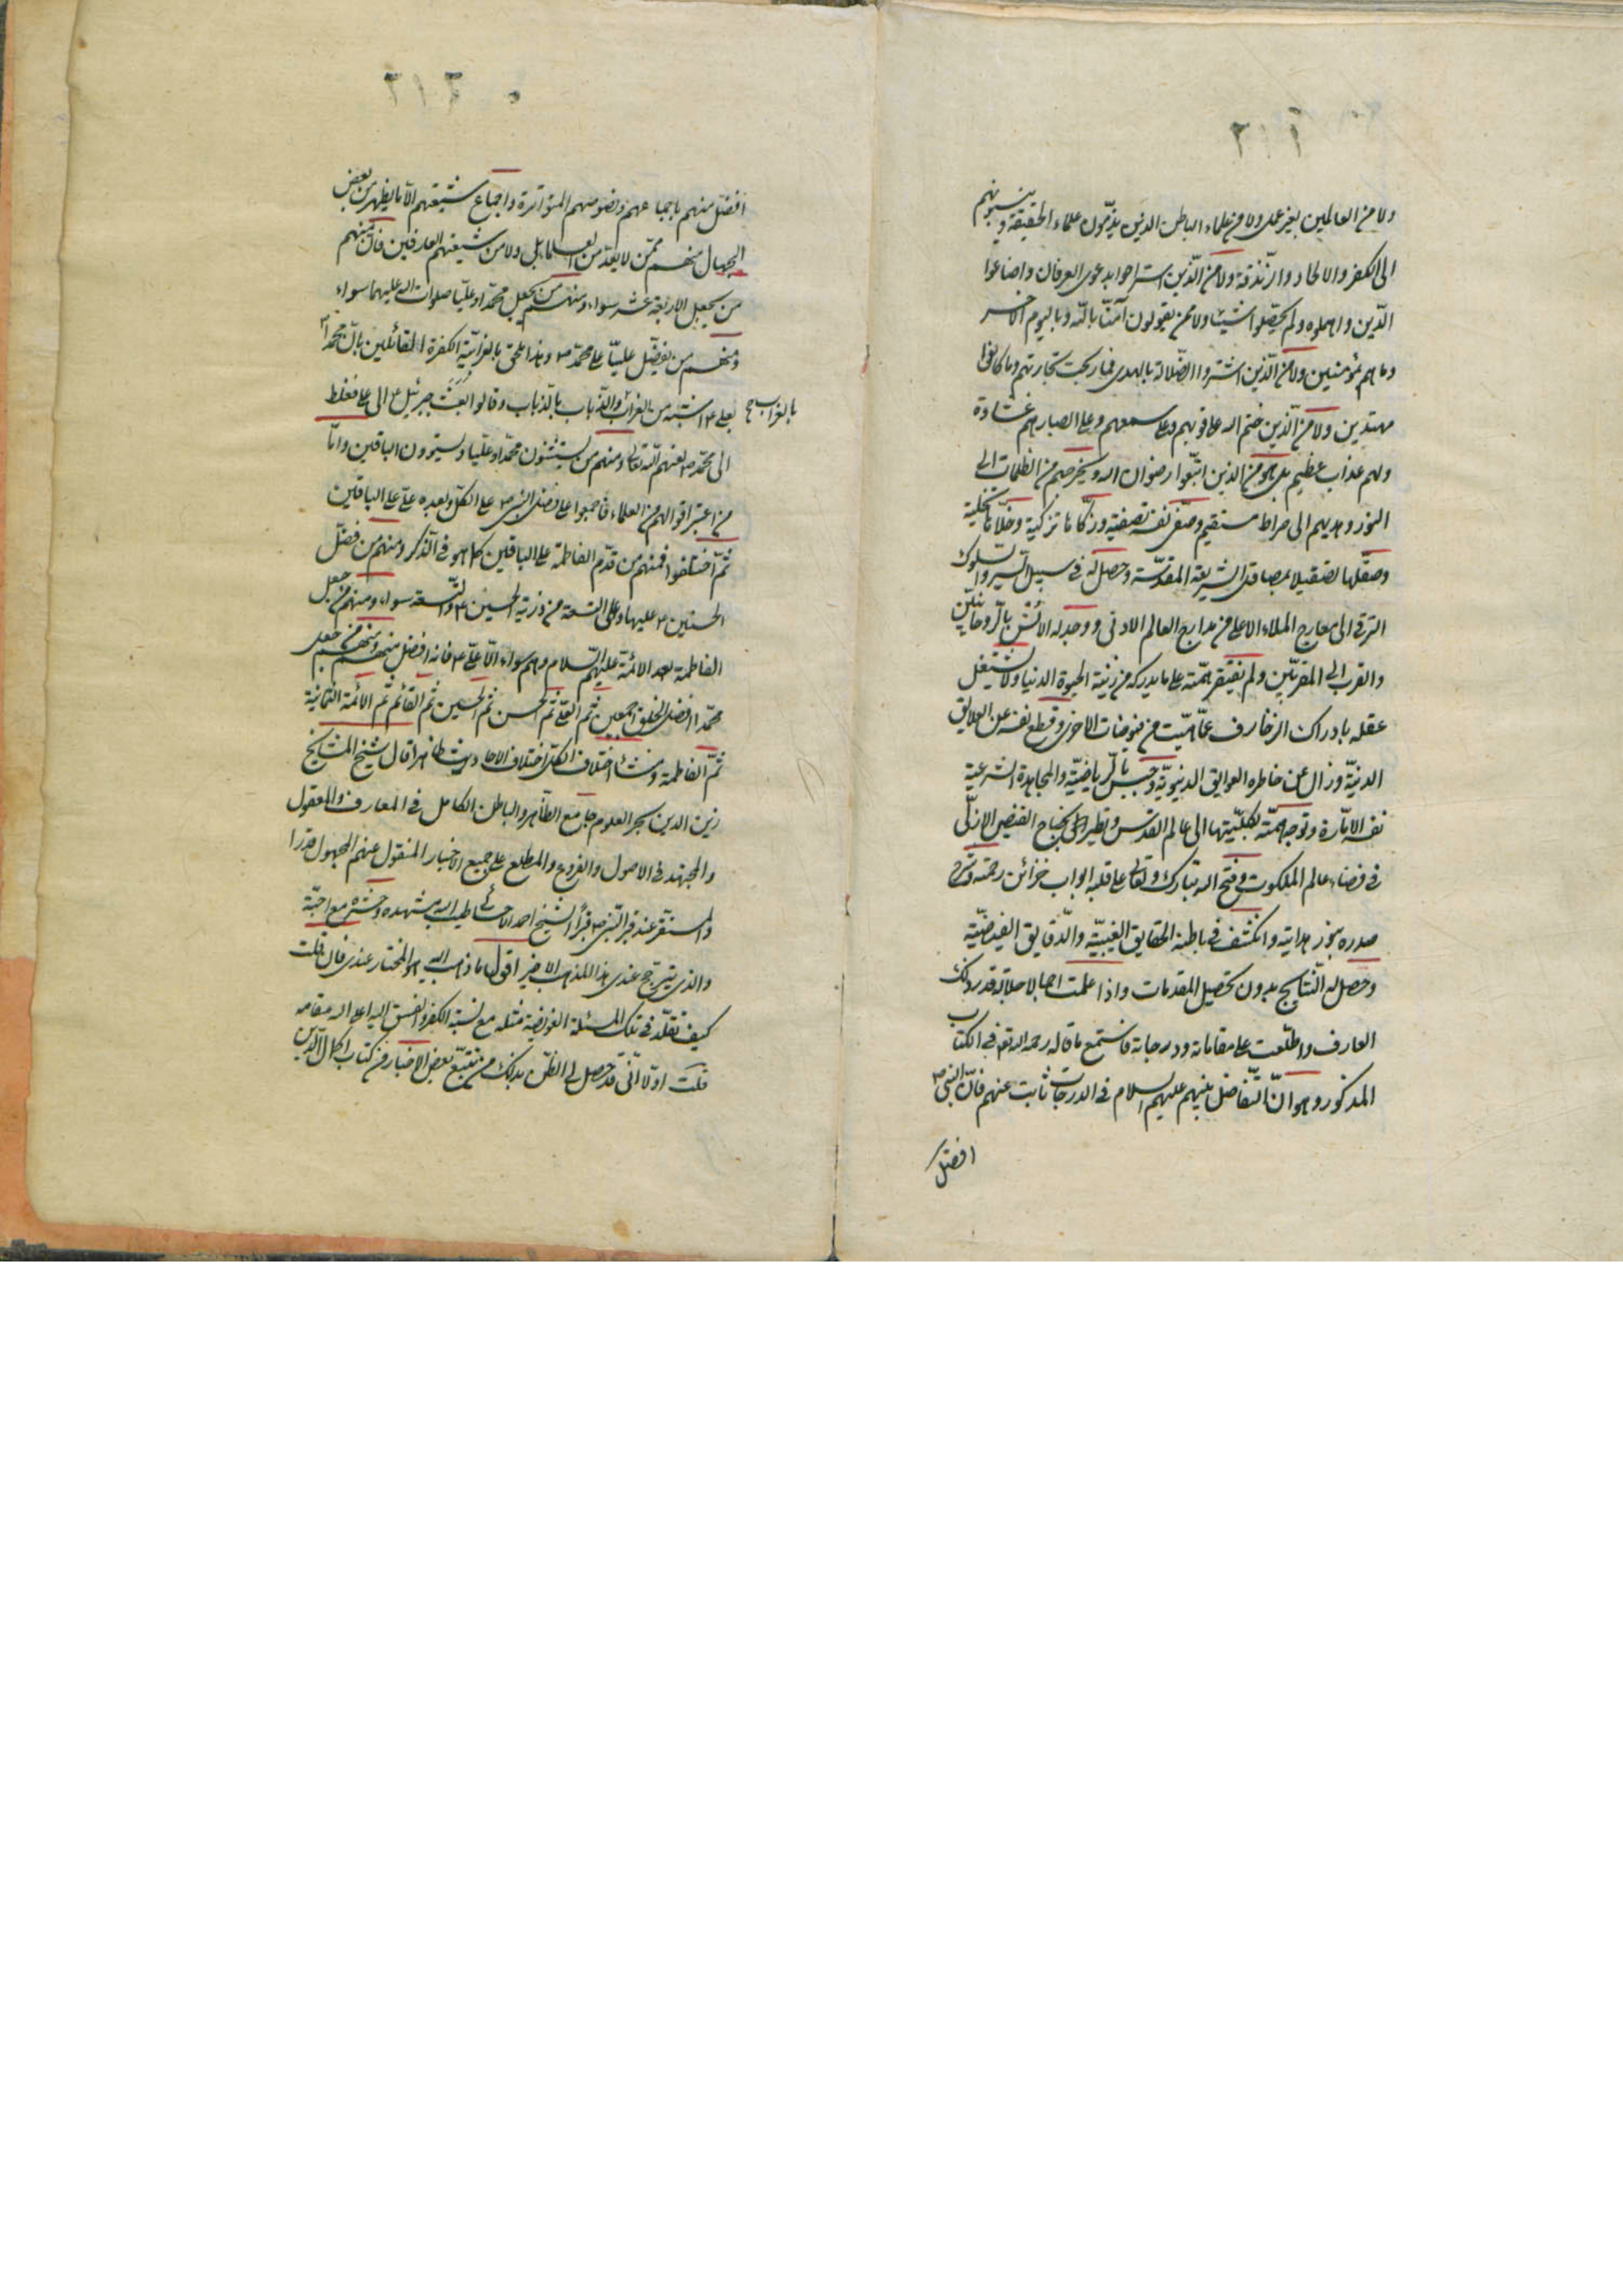 ٢١٢
ولا من العالمين بغير عمل ولا من علماء الباطن الذين يذمّون علماء الحقيقة وينسبونهم
الى الكفر والالحاد والزندقة ولا من الّذين استراحوا بدعوى العرفان واضاعوا
الدّين واهملوه ولم يحصّلوا شيئا ولا ممن يقولون آمنّا باللّه وباليوم الآخر
وما هم بمؤمنين ولا من الّذين اشتروا الضّلالة بالهدى فما ربحت تجارتهم وما كانوا
مهتدين ولا من الّذين ختم اللّه على قلوبهم وعلى سمعهم وعلى ابصارهم غشاوة
ولهم عذاب عظيم بل هو من الذين اتبّعوا رضوان اللّه ويخرجهم من الظلمات الى
النور ويهديهم الى صراط مستقيم وصفّى نفسه تصفية وزكّاها تزكية وخلّاها تخلية
وصقّلها تصقيلا بمصاقل الشريعة المقدسّة وحصل له في سبيل السّير والسّلوك
الترقى الى معارج الملاء الاعلى من مدارج العالم الادنى ووجد له الانس بالروحانيّين
والقرب الى المقربّين ولم يفتقر همّته على ما يدركه من زينة الحيوة الدنيا ولا يشتغل
عقله بادراك الزخارف عمّا هيّئت من فيوضات الاخرى وقطع نفسه عن العلايق
الدنيّة وزال عن خاطره العوايق الدنيويّة وحبس بالرياضيّة والمجاهدة الشرعية
نفسه الامّارة وتوجه همّته بكليّتها الى عالم القدس ويطير الى بجناح الفيض الازلّى
فى فضاء عالم الملكوت وفتح اللّه تبارك وتعالى على قلبه ابواب خزائن رحمته وشرح
صدره بنور هدايته وانكشف فى باطنه الحقايق الغيبيّة والدّقايق الفيضيّة
وحصل له النتايج بدون تحصيل المقدمات واذا علمت اجمالا جلالة قدر ذلك
العارف واطلّعت على مقاماته ودرجاته فاستمع ما قاله رحمه اللّه تع فى الكتاب
المذكور وهو انّ التّفاضل بينهم عليهم السلام فى الدرجات ثابت عنهم فانّ النبى ص
افضل
٢١٣
افضل منهم باجماعهم ونصوصهم المتواترة واجماع شيعتهم الّا ما يظهر من بعض
الجهال منهم ممّن لا يعدّ من العلماء بل ولا من شيعتهم العارفين فانّ منهم
من يجعل الاربعة عشر سواء ومنهم من يجعل محمّدا وعليّا صلوات اللّه عليهما سواء
ومنهم من يفضّل عليّا على محمّد ص وهذا يلحق بالغرابيّة الكفرة القائلين بانّ محمدا ص
بعلى ع اشبه من الغراب والذباب بالذباب وقالوا بعث جبرئيل ع الى على فغلط
بالغراب صح
الى محمّد ص لعنهم اللّه تعالى ومنهم من يستثنون محمّدا وعليّا ويسوّون الباقين وامّا
من اعتبر اقوالهم من العلماء فاجمعوا على فضل النبى ص على الكلّ وبعده علىّ على الباقين
ثمّ اختلفوا فمنهم من قدّم الفاطمة على الباقين كما هو فى الذكر ومنهم من فضّل
الحسنين ع عليها وعلى التسعة من ذرّية الحسين ع والتّسعة سواء ومنهم من جعل
الفاطمة بعد الائمّة عليهم السّلام وهم سواء الّا علىّ ع فانه افضل منهم ومنهم من جعل
محمّدا افضل الخلق اجمعين ثم العلىّ ثم الحسن ثم الحسين ثم القائم ثم الائمة الثمانية
ثمّ الفاطمة ومنشأ اختلاف الكلّ اختلاف الاحاديث ظاهرا قال شيخ المشايخ
زين الدين بحر العلوم جامع الظّاهر والباطن الكامل فى المعارف والمعقول
والمجتهد فى الاصول والفروع والمطلع على جميع الاخبار المنقول عنهم المجهول قدرا
والمستقرّ عند قبر النّبى ص قبرا الشّيخ احمد الاحسائى طيب اللّه مشهده وحشره مع احبّته
والذى يترجّح عندى هذا المذهب الاخير اقول ما ذهب اليه هو المختار عندى فان قلت
كيف تقلّد فى تلك المسئلة الغوامضية مثله مع نسبة الكفر والفسق اليه اعلى اللّه مقامه
قلت اوّلا انّى قد حصل لى الظّن بذلك من تتبّع بعض الاخبار من كتاب اكمال الدّين